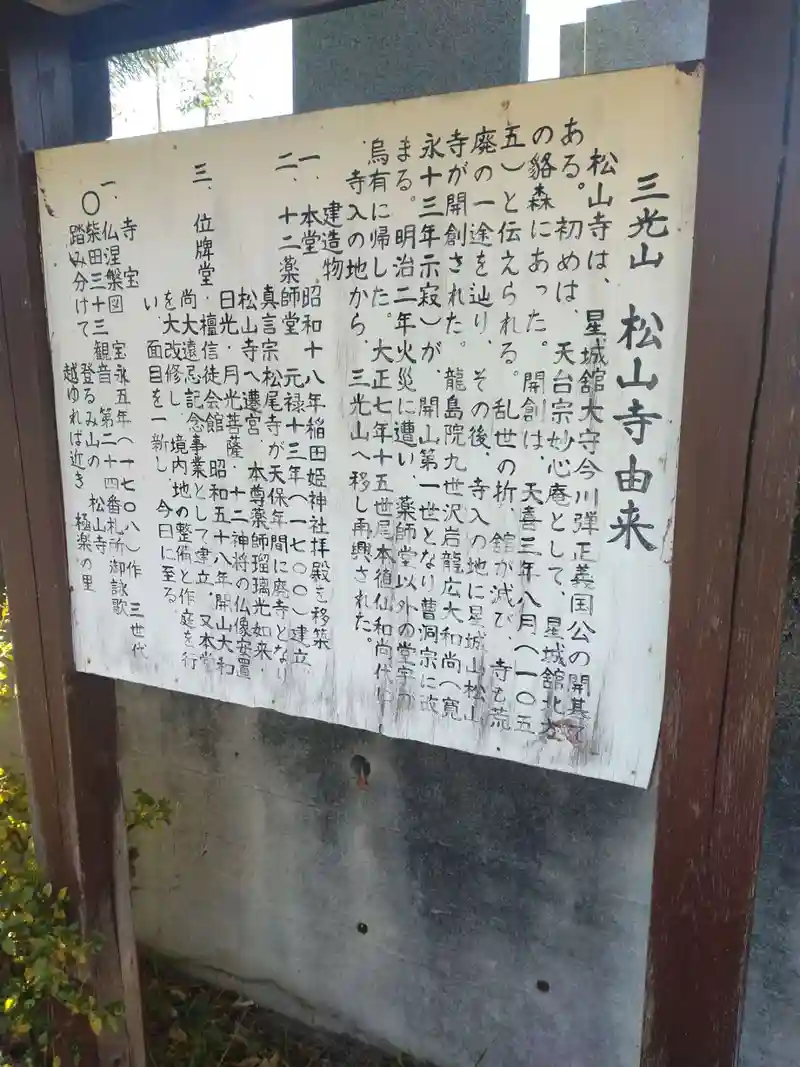 三光山　松山寺由来
松山寺は、星城舘大守今川弾正義国公の開基で
ある。初めは、天台宗妙心庵として、星城舘北方
の貉森にあった。開創は、天喜三年八月（一〇五
五）と伝えられる。乱世の折、舘が滅び、寺も荒
廃の一途を辿り、その後、寺入の地に星城山松山
寺が開創された。龍島院九世沢岩龍広大和尚（寛
永十三年示寂）が、開山第一世となり曹洞宗に改
まる。明治二年火災に遭い、薬師堂以外の堂宇が
烏有に帰した。大正七年十五世尾本徳仙和尚代に
寺入の地から、三光山へ移し再興された。
建造物
一、本堂　昭和十八年稲田姫神社拝殿を移築
二、十二薬師堂　元禄十三年（一七〇〇）建立、
真言宗松尾寺が天保年間に廃寺となり
松山寺へ遷宮、本尊薬師瑠璃光如来、
日光・月光菩薩・十二神将の仏像安置
三、位牌堂・檀信徒会館　昭和五十八年開山大和
尚大遠忌記念事業として建立、又本堂
を大改修し、境内地の整備と作庭を行
い、面目を一新し、今日に至る
寺宝
一、仏涅槃図　宝永五年（一七〇八）作　三世代
〇　柴田三十三観音　第二十四番札所御詠歌
踏み分けて　登るみ山の　松山寺
越ゆれば近き　極楽の里